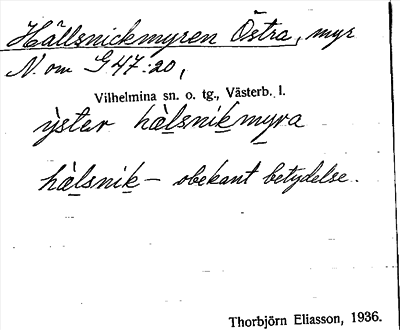 Hällsnickmyren Östra, myr
N. om G 47:20,
Vilhelmina sn. o. tg., Västerb. l.
ỳster hàlsnikmyra
hàlsnik — obekant betydelse.
Thorbjörn Eliasson, 1936.